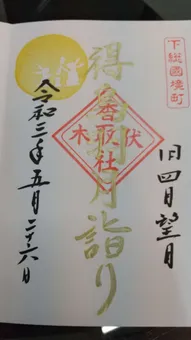 下総國境町
旧四月望月
月詣り
伏木
香取社
令和三年五月二十六日